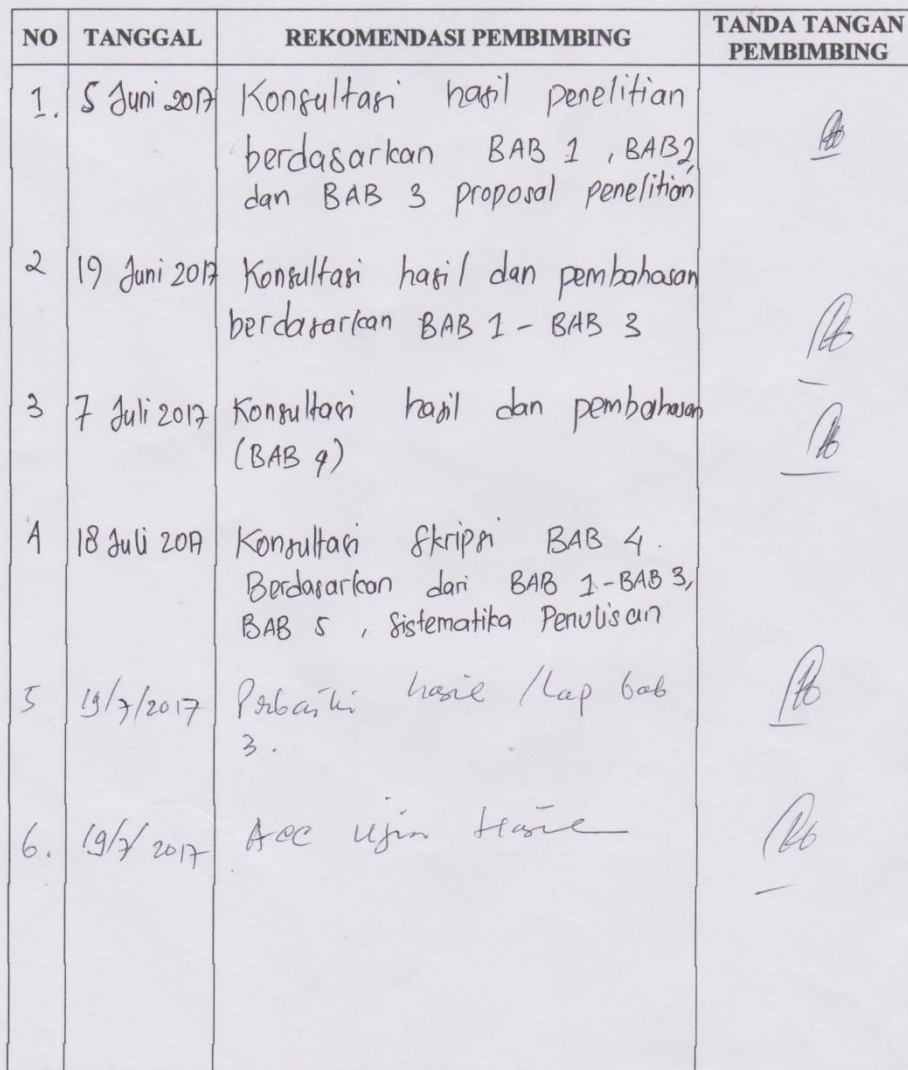 NO TANGGAL REKOMENDASI PEMBIMBING TANDA TANGAN
PEMBIMBING
1. 5 Juni 2017 Konsultasi hasil penelitian
berdasarkan BAB 1 , BAB 2
dan BAB 3 proposal penelitian
2 19 Juni 2017 Konsultasi hasil dan pembahasan
berdasarkan BAB 1 - BAB 3
3 7 Juli 2017 Konsultasi hasil dan pembahasan
(BAB 4)
4 18 Juli 2017 Konsultasi Skripsi BAB 4.
Berdasarkan dari BAB 1 - BAB 3,
BAB 5 , Sistematika Penulisan
5 19/7/2017 Perbaiki hasil / bab
3.
6. 19/7/2017 Acc Ujian Hasil